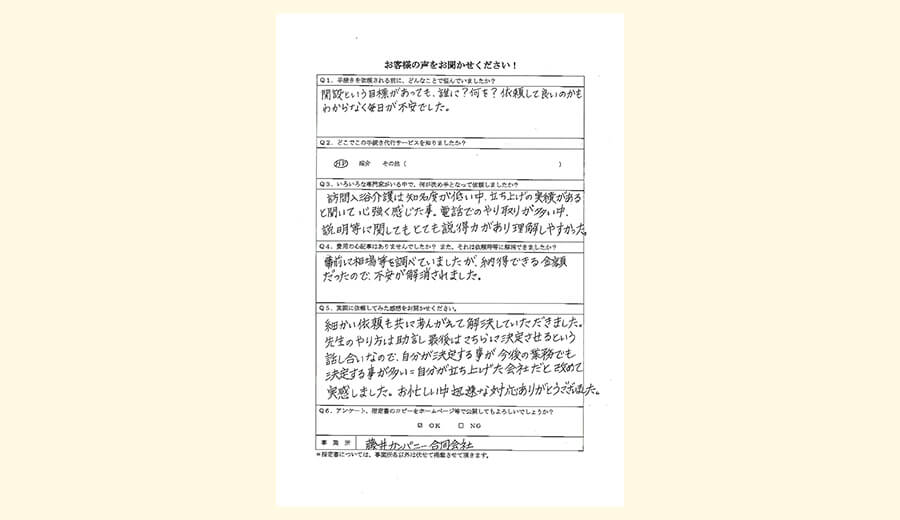 お客様の声をお聞かせください！
Q1．手続きを依頼される前に、どんなことで悩んでいましたか？
開設という目標があっても、誰に？何を？依頼して良いのかも
わからなく毎日が不安でした。
Q2．どこでこの手続き代行サービスを知りましたか？
HP 紹介 その他（ ）
Q3．いろいろな専門家がいる中で、何が決め手となって依頼しましたか？
訪問入浴介護は知名度が低い中、立ち上げの実績がある
と聞いて心強く感じた事。電話でのやり取りが多い中、
説明等に関してもとても説得力があり理解しやすかった。
Q4．費用の心配事はありませんでしたか？また、それは依頼時等に解消できましたか？
事前に相場等を調べていましたが、納得できる金額
だったので、不安が解消されました。
Q5．実際に依頼してみた感想をお聞かせください。
細かい依頼も共にかんがえて解決していただきました。
先生のやり方は助言し最後はこちらに決定させるという
話し合いなので、自分が決定する事が今後の業務でも
決定する事が多い＝自分が立ち上げた会社だと改めて
実感しました。お忙しい中迅速な対応ありがとうございました。
Q6．アンケート、指定書のコピーをホームページ等で公開してもよろしいでしょうか？
☑ OK ☐ NG
事業所 藤井カンパニー合同会社
＊指定書については、事業所名以外は伏せて掲載させて頂きます。